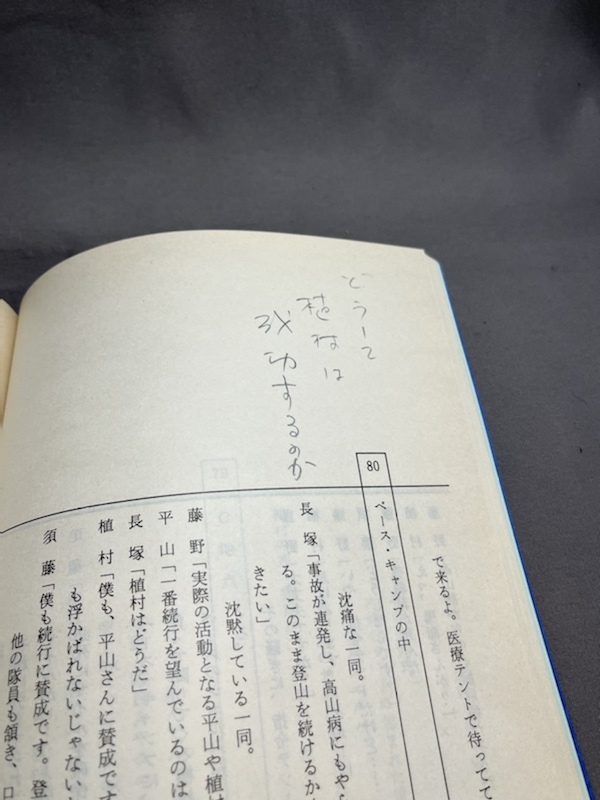 どうして
植村は
成功するのか
で来るよ。医療テントで待ってて
80
ベース・キャンプの中
沈痛な一同。
長塚「事故が連発し、高山病にもやら
る。このまま登山を続けるか
きたい」
沈黙している一同。
藤野「実際の活動となる平山や植
平山「一番続行を望んでいるのは
長塚「植村はどうだ」
植村「僕も、平山さんに賛成です
も浮かばれないじゃない
須藤「僕も続行に賛成です。登
他の隊員も頷き、口